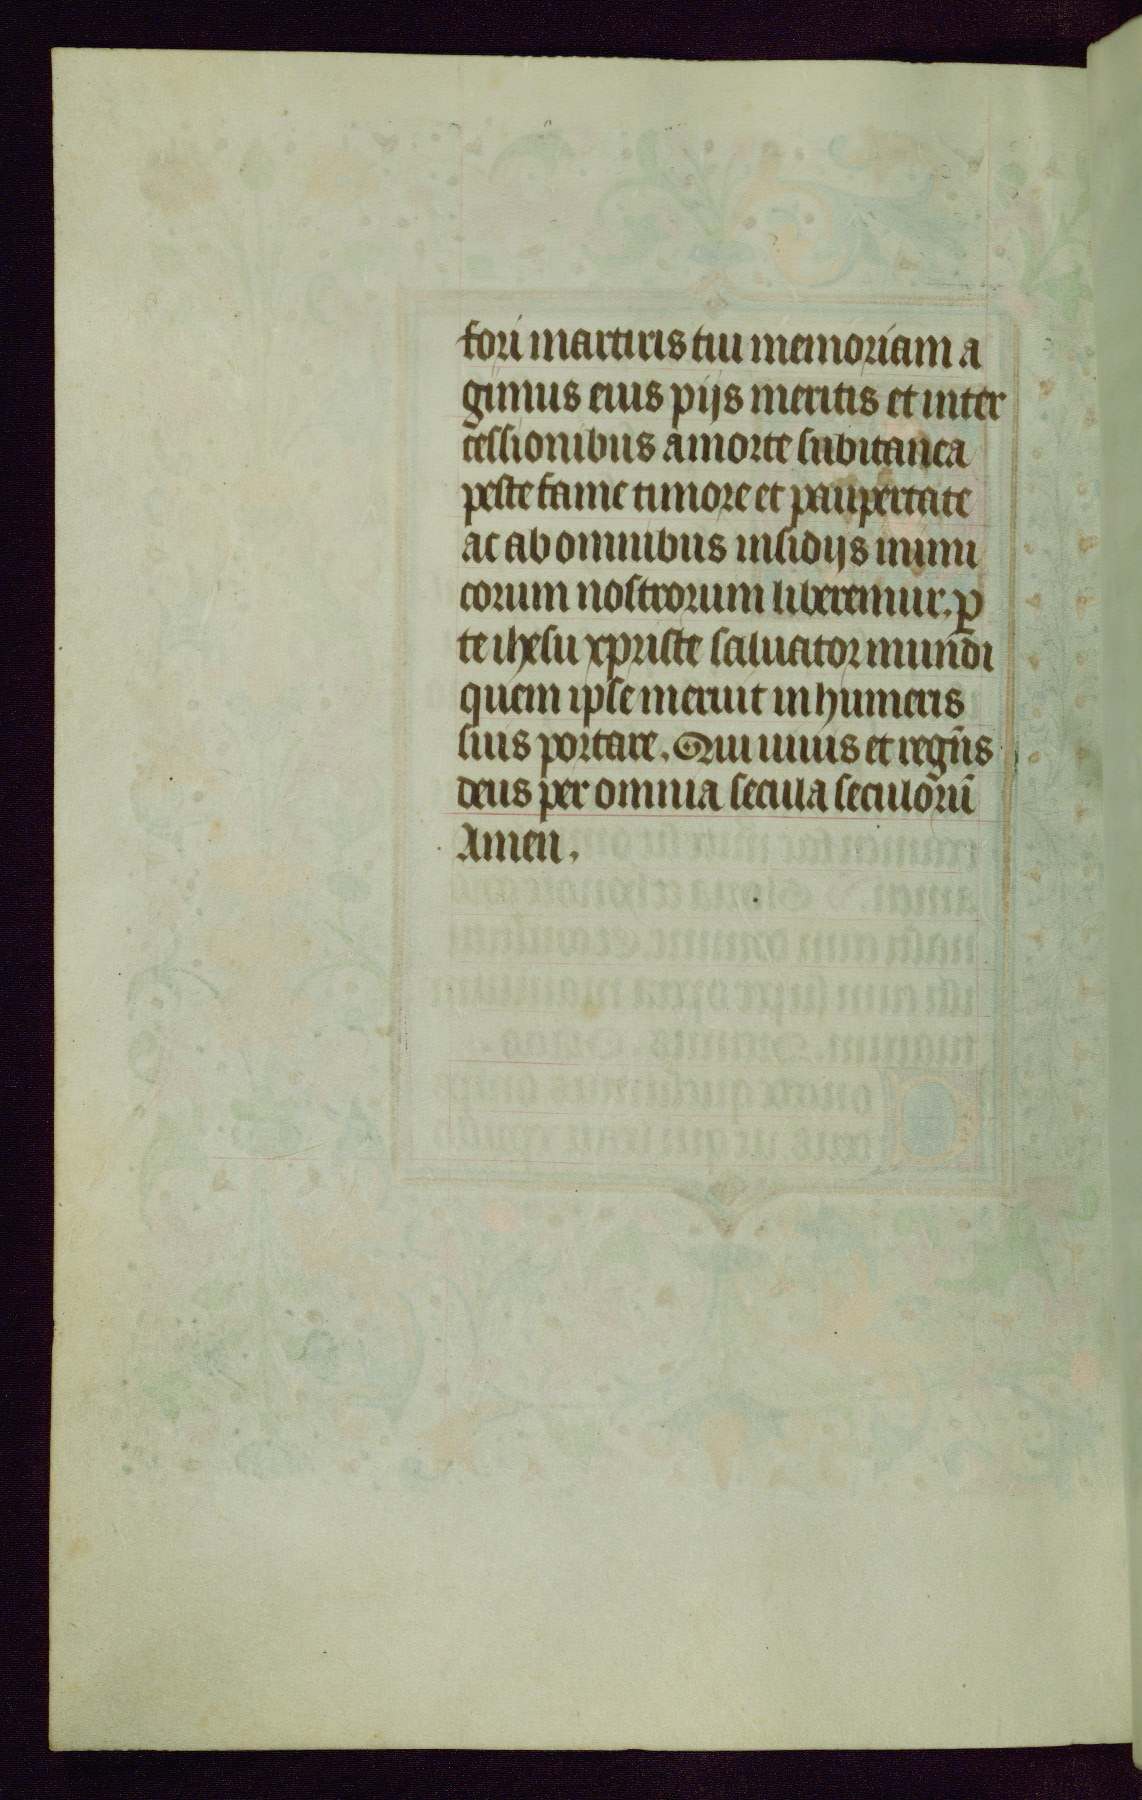 fori martiris tui memoriam a
gimus eius pijs meritis et inter
cessionibus a morte subitanea
peste fame timore et paupertate
ac ab omnibus insidijs inimi
corum nostrorum liberemur. p̱
te ihesu xpriste saluator mundi
quem ipse meruit in humeris
suis portare. Qui uiuis et regn̄s
deus per omnia secula seculorū
Amen.